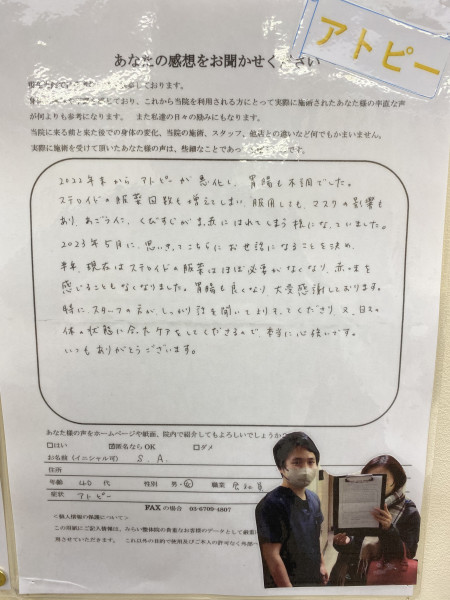 アトピー
あなたの感想をお聞かせください
おります。
おり、これから当院を利用される方にとって実際に施術されたあなた様の率直な声
が何よりも参考になります。 また私達の日々の励みにもなります。
当院に来る前と来た後での身体の変化、当院の施術、スタッフ、他店との違いなど何でもかまいません。
実際に施術を受けて頂いたあなた様の声は、些細なことであっ です。
2022年末から、アトピーが悪化し、胃腸も不調でした。
ステロイドの服薬回数も増えてしまい、服用しても、マスクの影響も
あり、あごラインに、くびすじがまっ赤にはれてしまう様になっていました。
2023年5月に、思いきってこちらにお世話になることを決め、
半年、現在はステロイドの服薬はほぼ必要がなくなり、赤味を
感じることもなくなりました。胃腸も良くなり、大変感謝しております。
特に、スタッフの方が、しっかり話を聞いて下さり、又、日々の
体の状態に合ったケアをしてくださるので、本当に心強いです。
いつもありがとうございます。
あなた様の声をホームページや紙面、院内で紹介してもよろしいでしょうか
□はい ☑匿名ならOK □ダメ
お名前(イニシャル可) S. A.
住所
年齢 40 代 性別 男・女 職業 会社員
症状 アトピー
FAXの場合 03-6709-4807
<個人情報の保護について>
この用紙にご記入情報は、みらい整体院の貴重なお客様のデータとして厳重に
用させていただきます。 これ以外の目的で使用及びご本人の許可なく外部へ